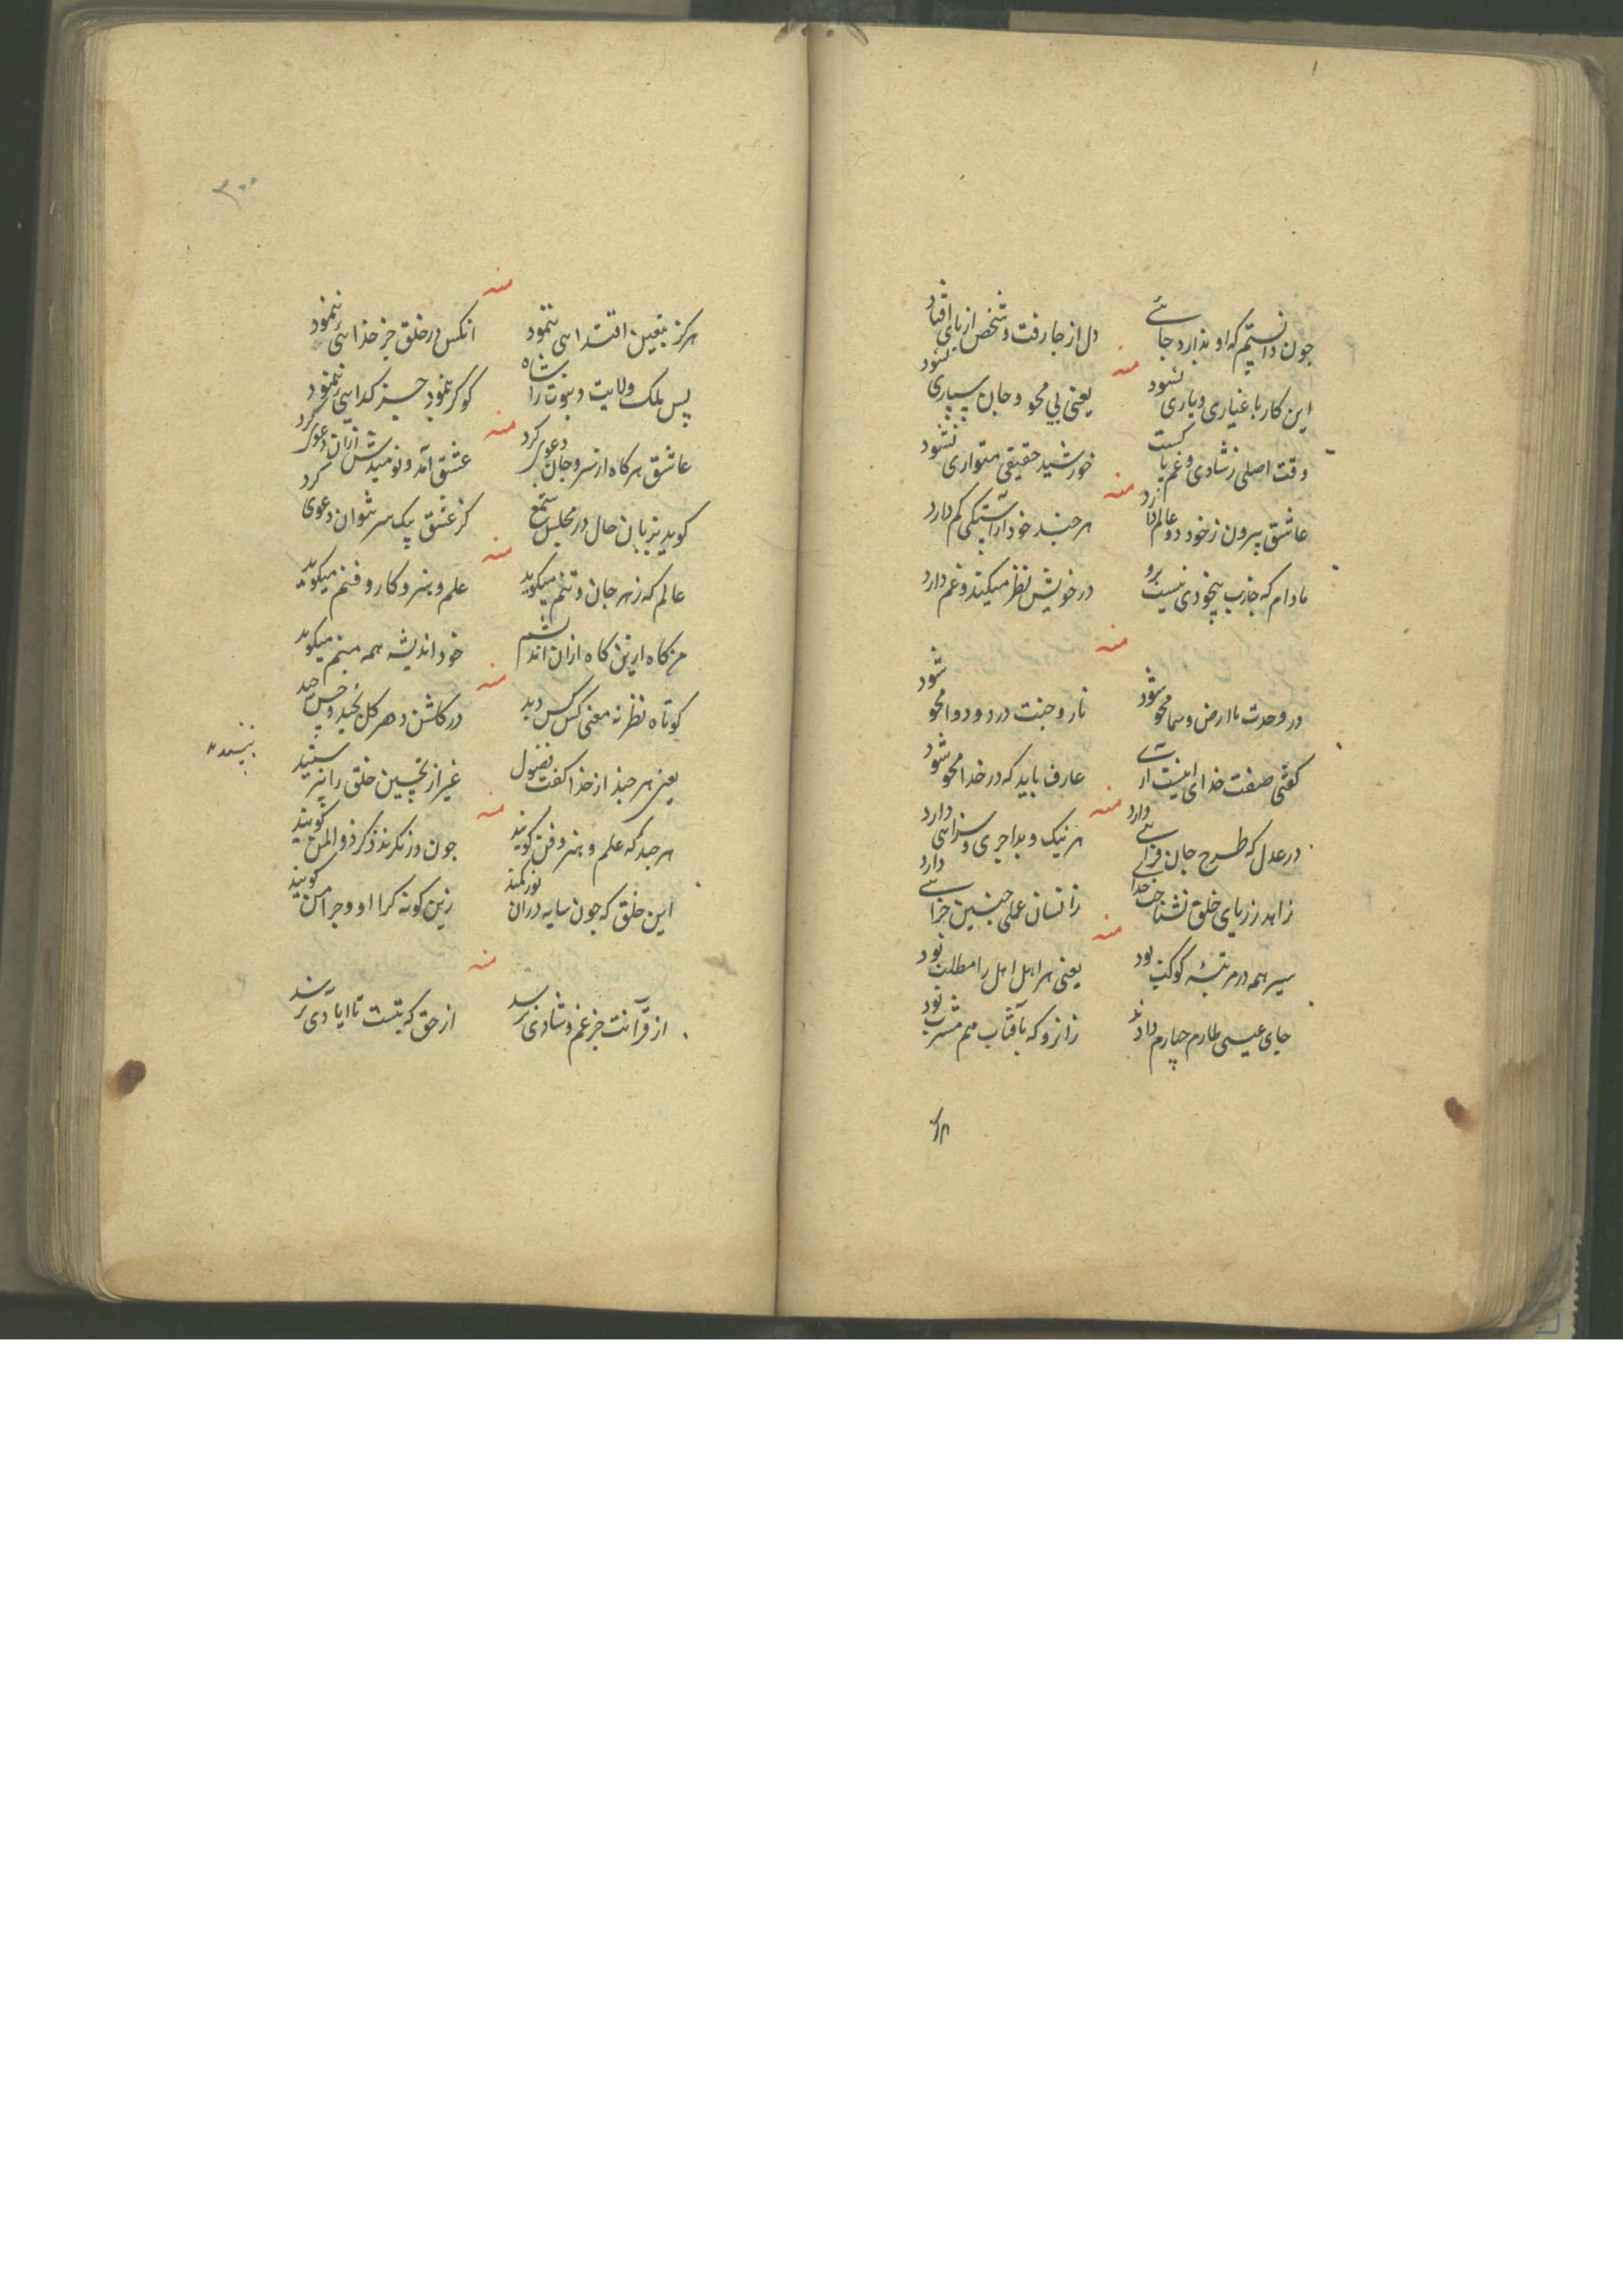 چون دانستیم که او ندارد جائی
دل از جا رفت و شخص از پای افتاد
منه
این کار باغیاری و یاری نشود
یعنی بی محو و جان سپاری نشود
وقت اصلی ز شادی و غم
خورشید حقیقی متواری نشود
منه
عاشق بیرون ز خود دو عالم دارد
هر چند خود آراستگی کم دارد
مادام که جذب بیخودی نیست برو
در خویش نظر میکند و غم دارد
منه
در وحدت ما ارض و سما محو شود
نار و جنت درد و دوا محو شود
کفتی صفت خدای
عارف باید که در خدا محو شود
منه
در عدل که طرح جان فزائی دارد
هر نیک و بد اجری و سزائی دارد
زاهد ز ریای خلق نشناخت خدا
زانسان عملی چنین جزائی دارد
منه
سیر همه در مرتبهٔ کوکب بود
یعنی هر اهل اهل را مطلب بود
جای عیسی طارم چهارم دادند
زانرو که بآفتاب هم مشرب بود
۳۰۰
منه
هرکز بیقین اقتدائی ننمود
انکس در خلق جز خدائی ننمود
پس ملک ولایت و نبوت را شاه
کو کر ننمود جز کدائی ننمود
منه
عاشق هر کاه از سر و جان دعوی کرد
عشق آمد و نومیدش ازان دعوی کرد
کوید بزبان حال در مجلس
کز عشق بیک سر نتوان دعوی کرد
منه
عالم که زهر جان و تنم میکوید
علم و هنر و کار و فنم میکوید
من کاه ازین کاه ازان اندیشم
خود اندیشه همه منم میکوید
منه
کوتاه نظر نه معنی کس کس دید
در کلشن دهر کل نچید و خس چید
یعنی هر چند از خدا کفت فضول
غیر از تحسین خلق را
منه
هر چند که علم و هنر و فن کویند
چون در نکرند ذکر ذوالمن کویند
این خلق که چون سایه دران نور کمند
زین کونه کرا او و چرا من کویند
منه
از قرآنت جز غم و شادی نرسد
از حق که بتست تا ایادی نرسد